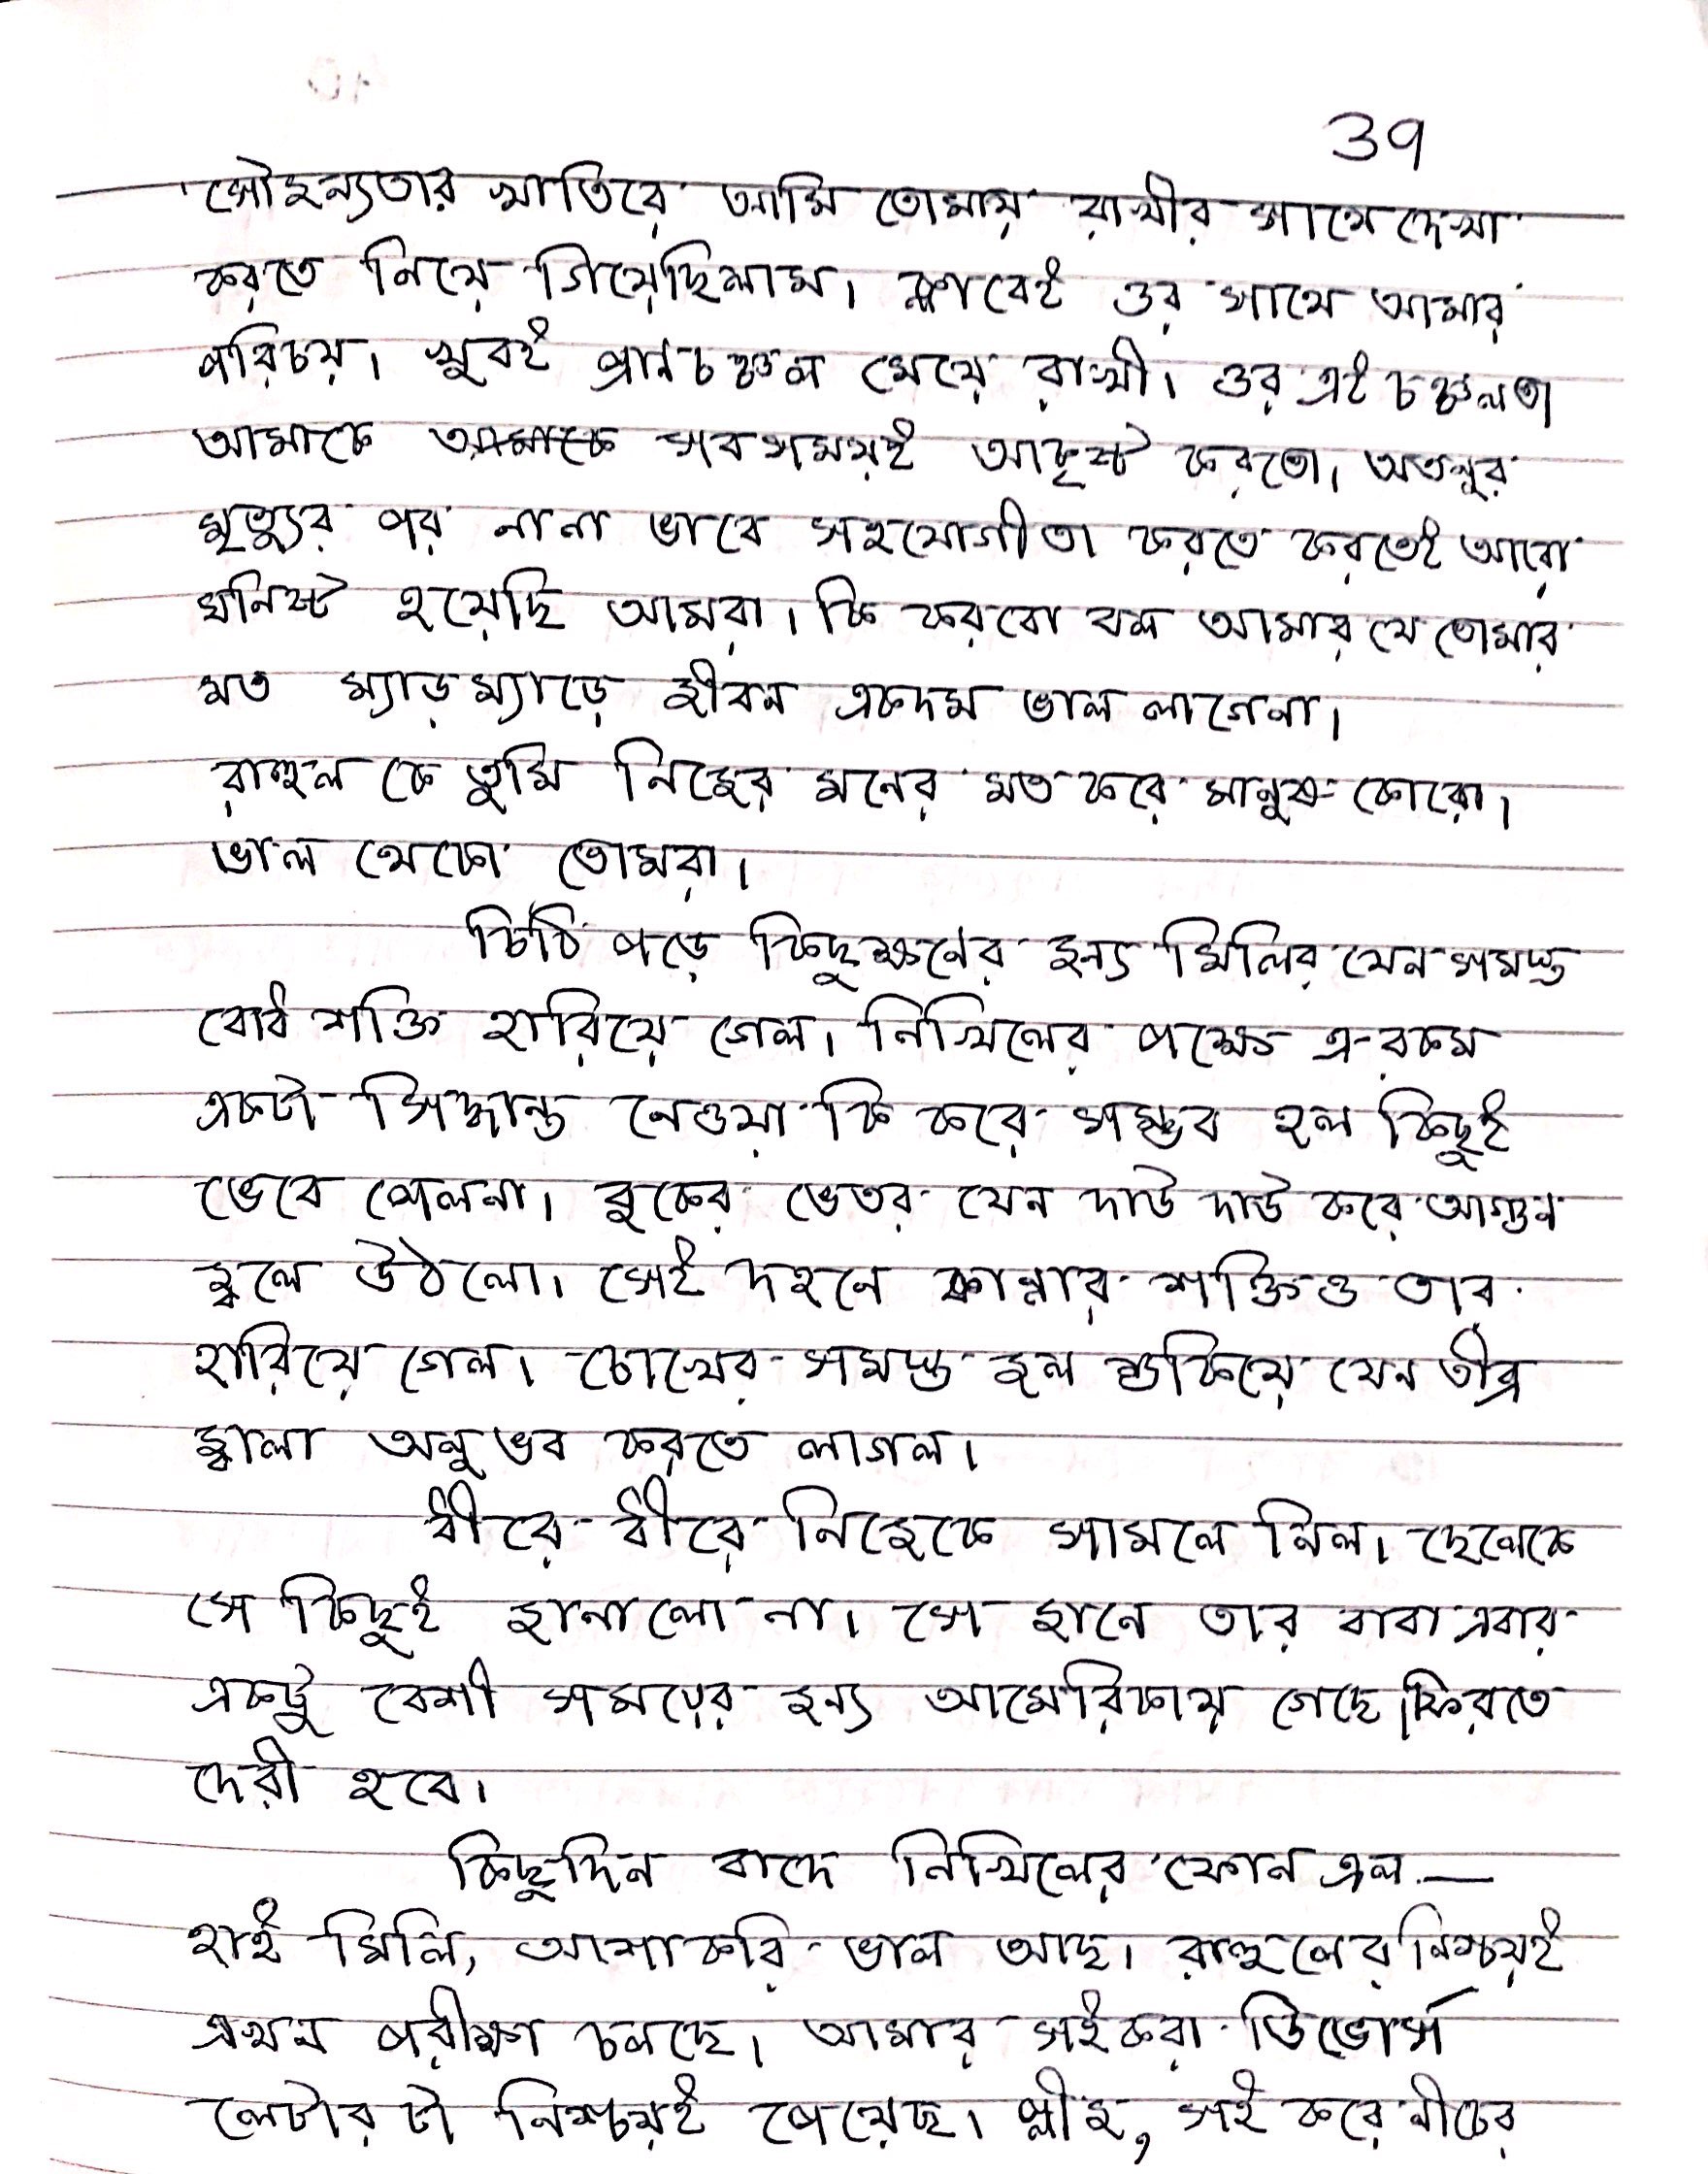 39
সৌজন্যতার খাতিরে আমি তোমায় রাখীর সাথে দেখা
করতে নিয়ে গিয়েছিলাম। ক্লাবেই ওর সাথে আমার
পরিচয়। খুবই প্রানচঞ্চল মেয়ে রাখী। ওর এই চঞ্চলতা
আমাকে আমাকে সবসময়ই আকৃষ্ট করতো। অতনুর
মৃত্যুর পর নানা ভাবে সহযোগীতা করতে করতেই আরো
ঘনিষ্ট হয়েছি আমরা। কি করবো বল আমার যে তোমার
মত ম্যাড়ম্যাড়ে জীবন একদম ভাল লাগেনা।
রাহুল কে তুমি নিজের মনের মত করে মানুষ কোরো।
ভাল থেকো তোমরা।
চিঠি পড়ে কিছুক্ষনের জন্য মিলির যেন সমস্ত
বোধ শক্তি হারিয়ে গেল। নিখিলের পক্ষে এ-রকম
একটা সিদ্ধান্ত নেওয়া কি করে সম্ভব হল কিছুই
ভেবে পেলনা। বুকের ভেতর যেন দাউ দাউ করে আগুন
জ্বলে উঠলো। সেই দহনে কান্নার শক্তিও তার
হারিয়ে গেল। চোখের সমস্ত জল শুকিয়ে যেন তীব্র
জ্বালা অনুভব করতে লাগল।
ধীরে ধীরে নিজেকে সামলে নিল। ছেলেকে
সে কিছুই জানালো না। সে জানে তার বাবা এবার
একটু বেশী সময়ের জন্য আমেরিকায় গেছে। ফিরতে
দেরী হবে।
কিছুদিন বাদে নিখিলের ফোন এল —
হাই মিলি, আশাকরি ভাল আছ। রাহুলের নিশ্চয়ই
এখন পরীক্ষা চলছে। আমার সইকরা ডিভোর্স
লেটার টা নিশ্চয়ই পেয়েছ। প্লীজ, সই করে নীচের